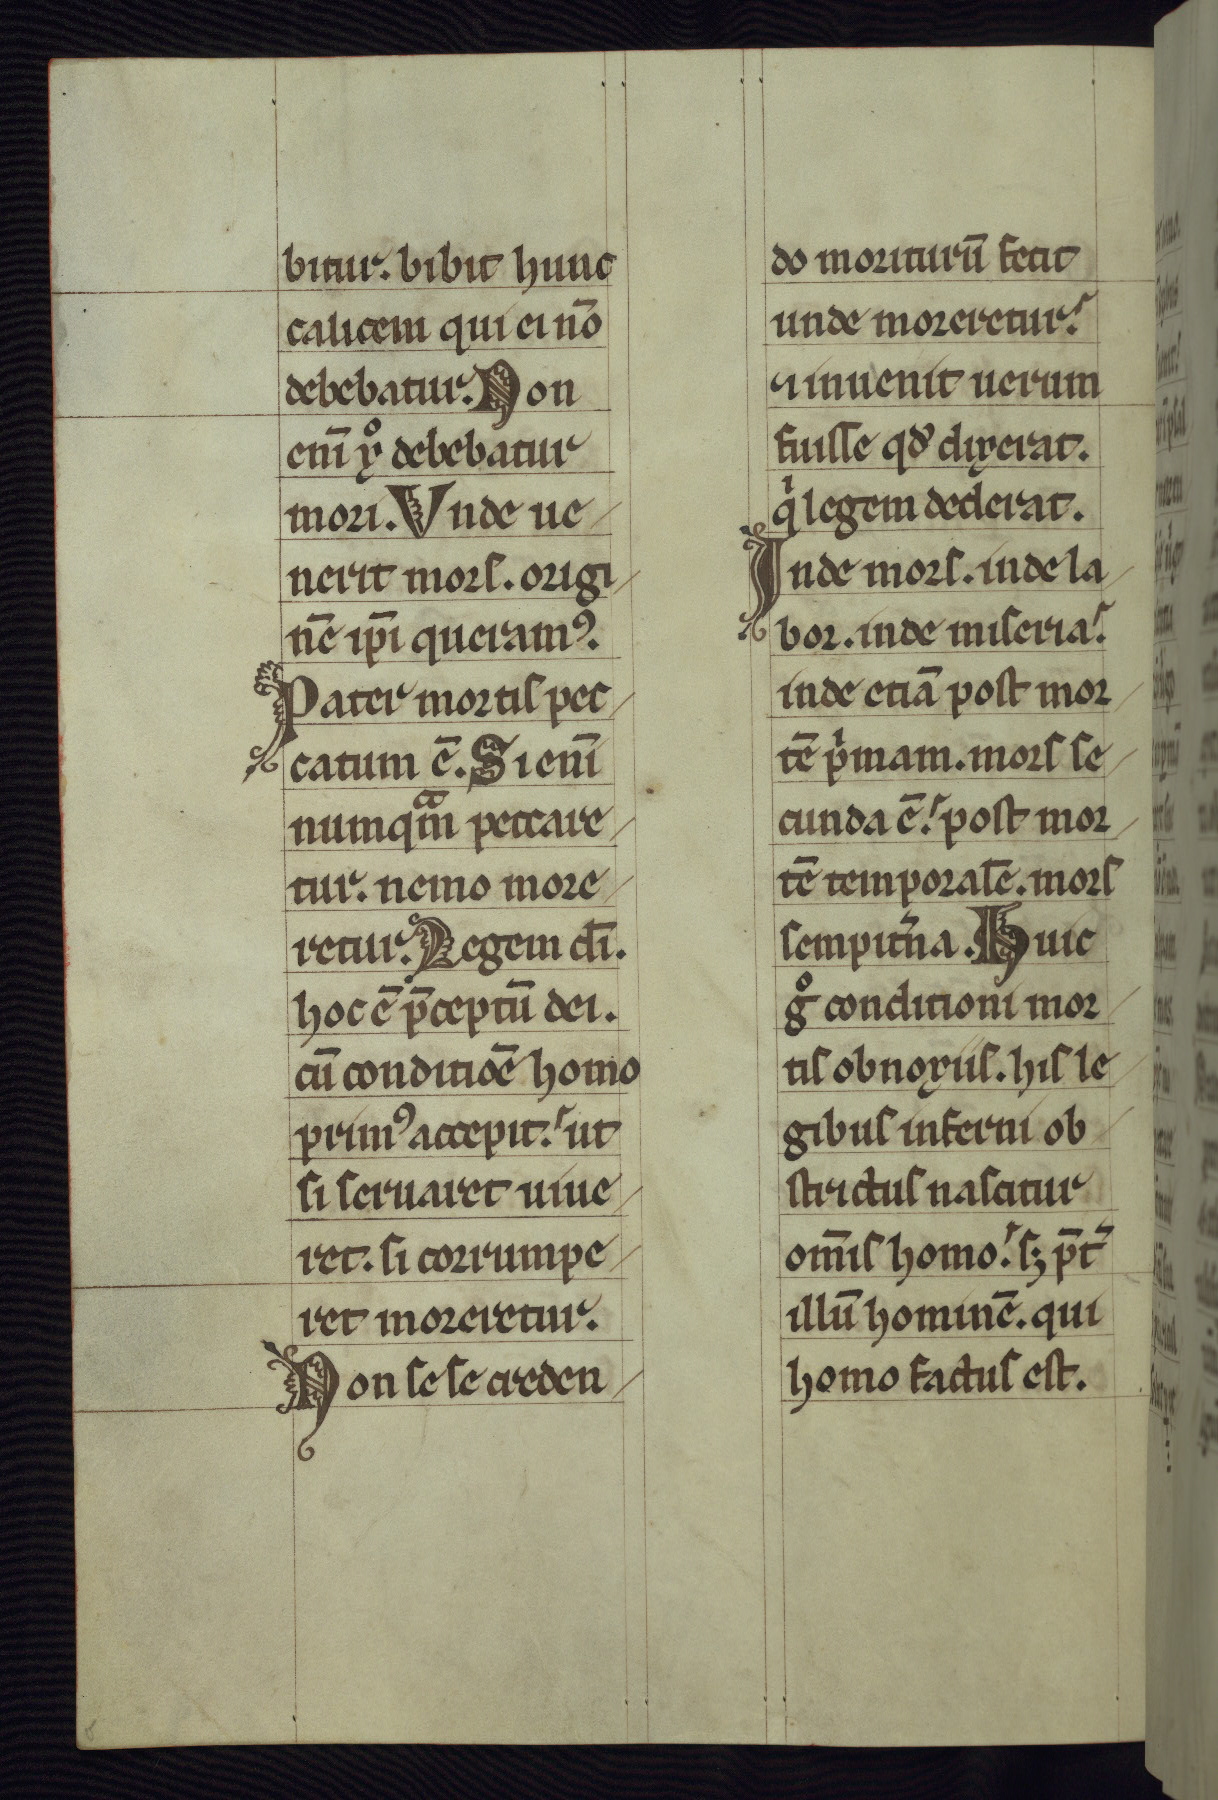 bitur. bibit hunc
calicem qui ei nō
debebatur. Non
enī xͦ debebatur
mori. Vnde ue
nerit mors. origi
nē ip̄i queramꝰ.
Pater mortis pec
catum ē. Si enī
numqͣm peccare
tur. nemo more
retur. Legem dī.
hoc ē p̄ceptū dei.
cū conditiōe homo
primꝰ accepit. ut
si seruaret uiue
ret. si corrumpe
ret moreretur.
Non se se creden
do moriturū fecit
unde moreretur.
⁊ inuenit uerum
fuisse qd̓ dixerat.
qͥ legem dederat.
Inde mors. inde la
bor. inde miseria.
inde etiā post mor
tē pͥmam. mors se
cunda ē. post mor
tē temporalē. mors
sempit̓na. Huic
gͦ conditioni mor
tis obnoxius. his le
gibus inferni ob
strictus nascitur
om̄is homo. sꝫ p̄t̓
illū hominē. qui
homo factus est.